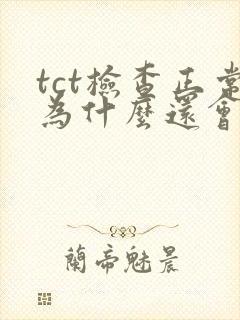 tct檢查正常
為什麼還會
蘭帝魅晨